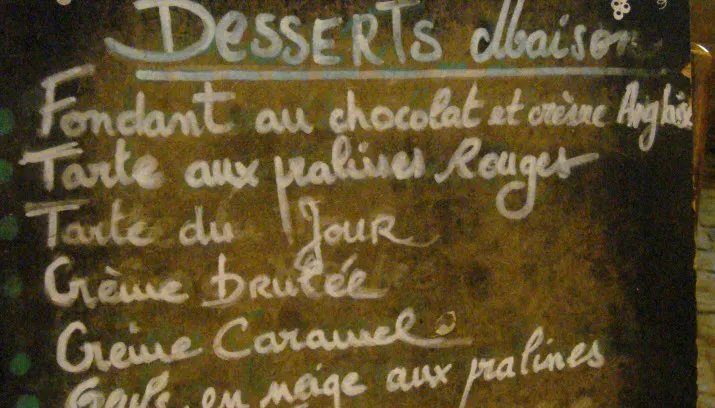 Desserts Maison
Fondant au chocolat et crème Anglaise
Tarte aux pralines Rouges
Tarte du Jour
Crème brulée
Crème Caramel
en neige aux pralines